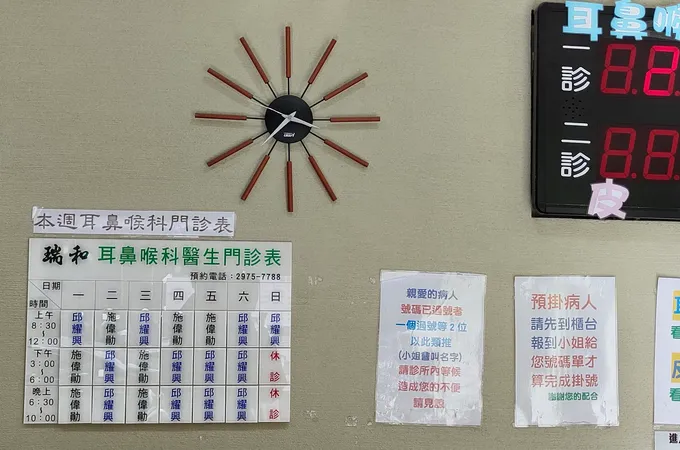 耳鼻喉
一診
二診
皮
本週耳鼻喉科門診表
瑞和 耳鼻喉科醫生門診表
預約電話：2975-7788
日期 一 二 三 四 五 六 日
時間
上午 8:30~12:00 邱耀興 施偉勛 邱耀興 施偉勛 施偉勛 邱耀興 邱耀興
下午 3:00~6:00 施偉勛 邱耀興 施偉勛 邱耀興 邱耀興 邱耀興 休診
晚上 6:30~10:00 施偉勛 邱耀興 施偉勛 施偉勛 邱耀興 邱耀興 休診
親愛的病人
號碼已過號者
一個過號等2位
以此類推
(小姐會叫名字)
請診所內等候
造成您的不便
請見諒
預掛病人
請先到櫃台
報到小姐給
您號碼單才
算完成掛號
謝謝您的配合
看
看